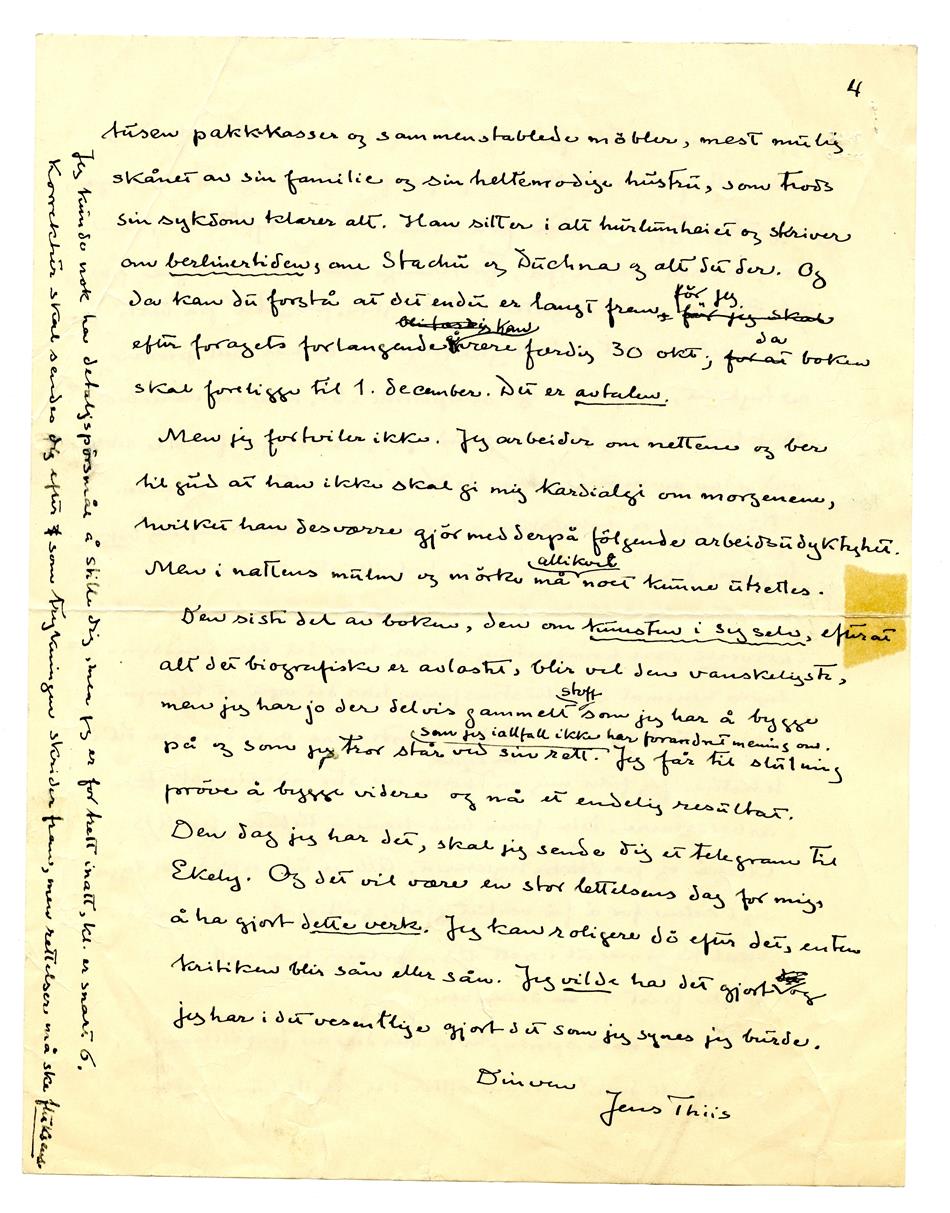 4
tusen pakk-kasser og sammenstablede möbler, mest mulig
skånet av sin familie og sin heltemodige hustru, som trods
sin sykdom klarer alt. Han sitter i alt hurlumheiet og skriver
om berlinertiden, om Stachu og Duchna og alt det der. Og
da kan du forstå at det endu er langt frem, för jeg för jeg skal
efter foragets forlangende være færdig 30 okt; for at da boken
skal foreligge til 1. december. Det er avtalen.
Men jeg fortviler ikke. Jeg arbeider om nettene og ber
til gud at han ikke skal gi mig kardialgi om morgenene,
hvilket han desværre gjör med derpå fölgende arbeidsudyktighet.
Men i nattens mulm og mörke må allikevel noet kunne utrettes.
Den siste del av boken, den om kunsten i sig selv, efterat
alt det biografiske er avlastet, blir vel den vanskeligste,
men jeg har jo der delvis gammelt stoff som jeg har å bygge
på og som jeg tror står ved sin rett. som jeg iallfall ikke har forandret mening om. Jeg får til slutning
pröve å bygge videre og nå et endelig resultat.
Den dag jeg har det, skal jeg sende dig et telegram til
Ekely. Og det vil være en stor lettelsens dag for mig,
å ha gjort dette verk. Jeg kan roligere dö efter det, enten
kritiken blir sån eller sån. Jeg vilde ha det gjort og
jeg har i det vesentlige gjort det som jeg synes jeg burde.
Din ven
Jens Thiis
Jeg kunde nok ha detaljspörsmål å stille dig, men jeg er for trett inatt, kl. er snart 6.
Korrektur skal sendes dig efter som trykningen skrider frem, men rettelser må ske fluksens